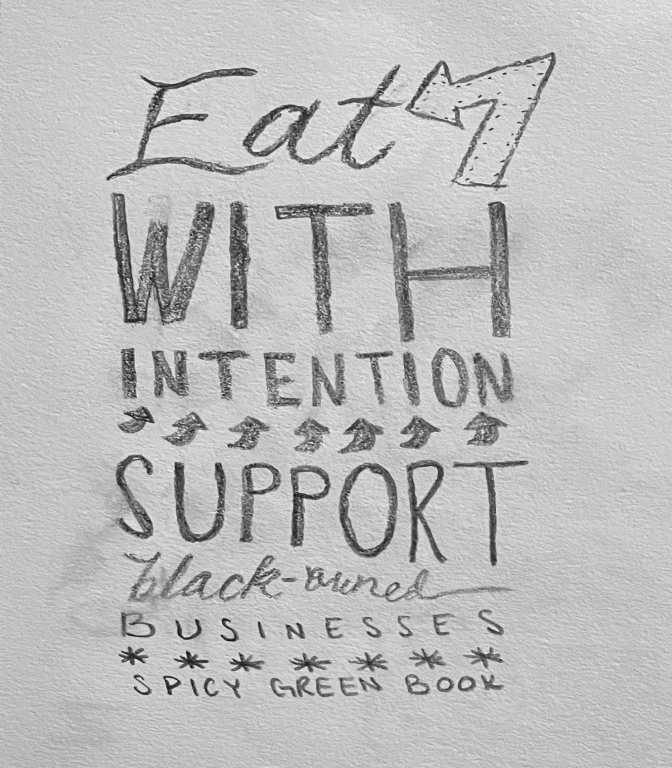 Eat
WITH
INTENTION
SUPPORT
black-owned
BUSINESSES
SPICY GREEN BOOK